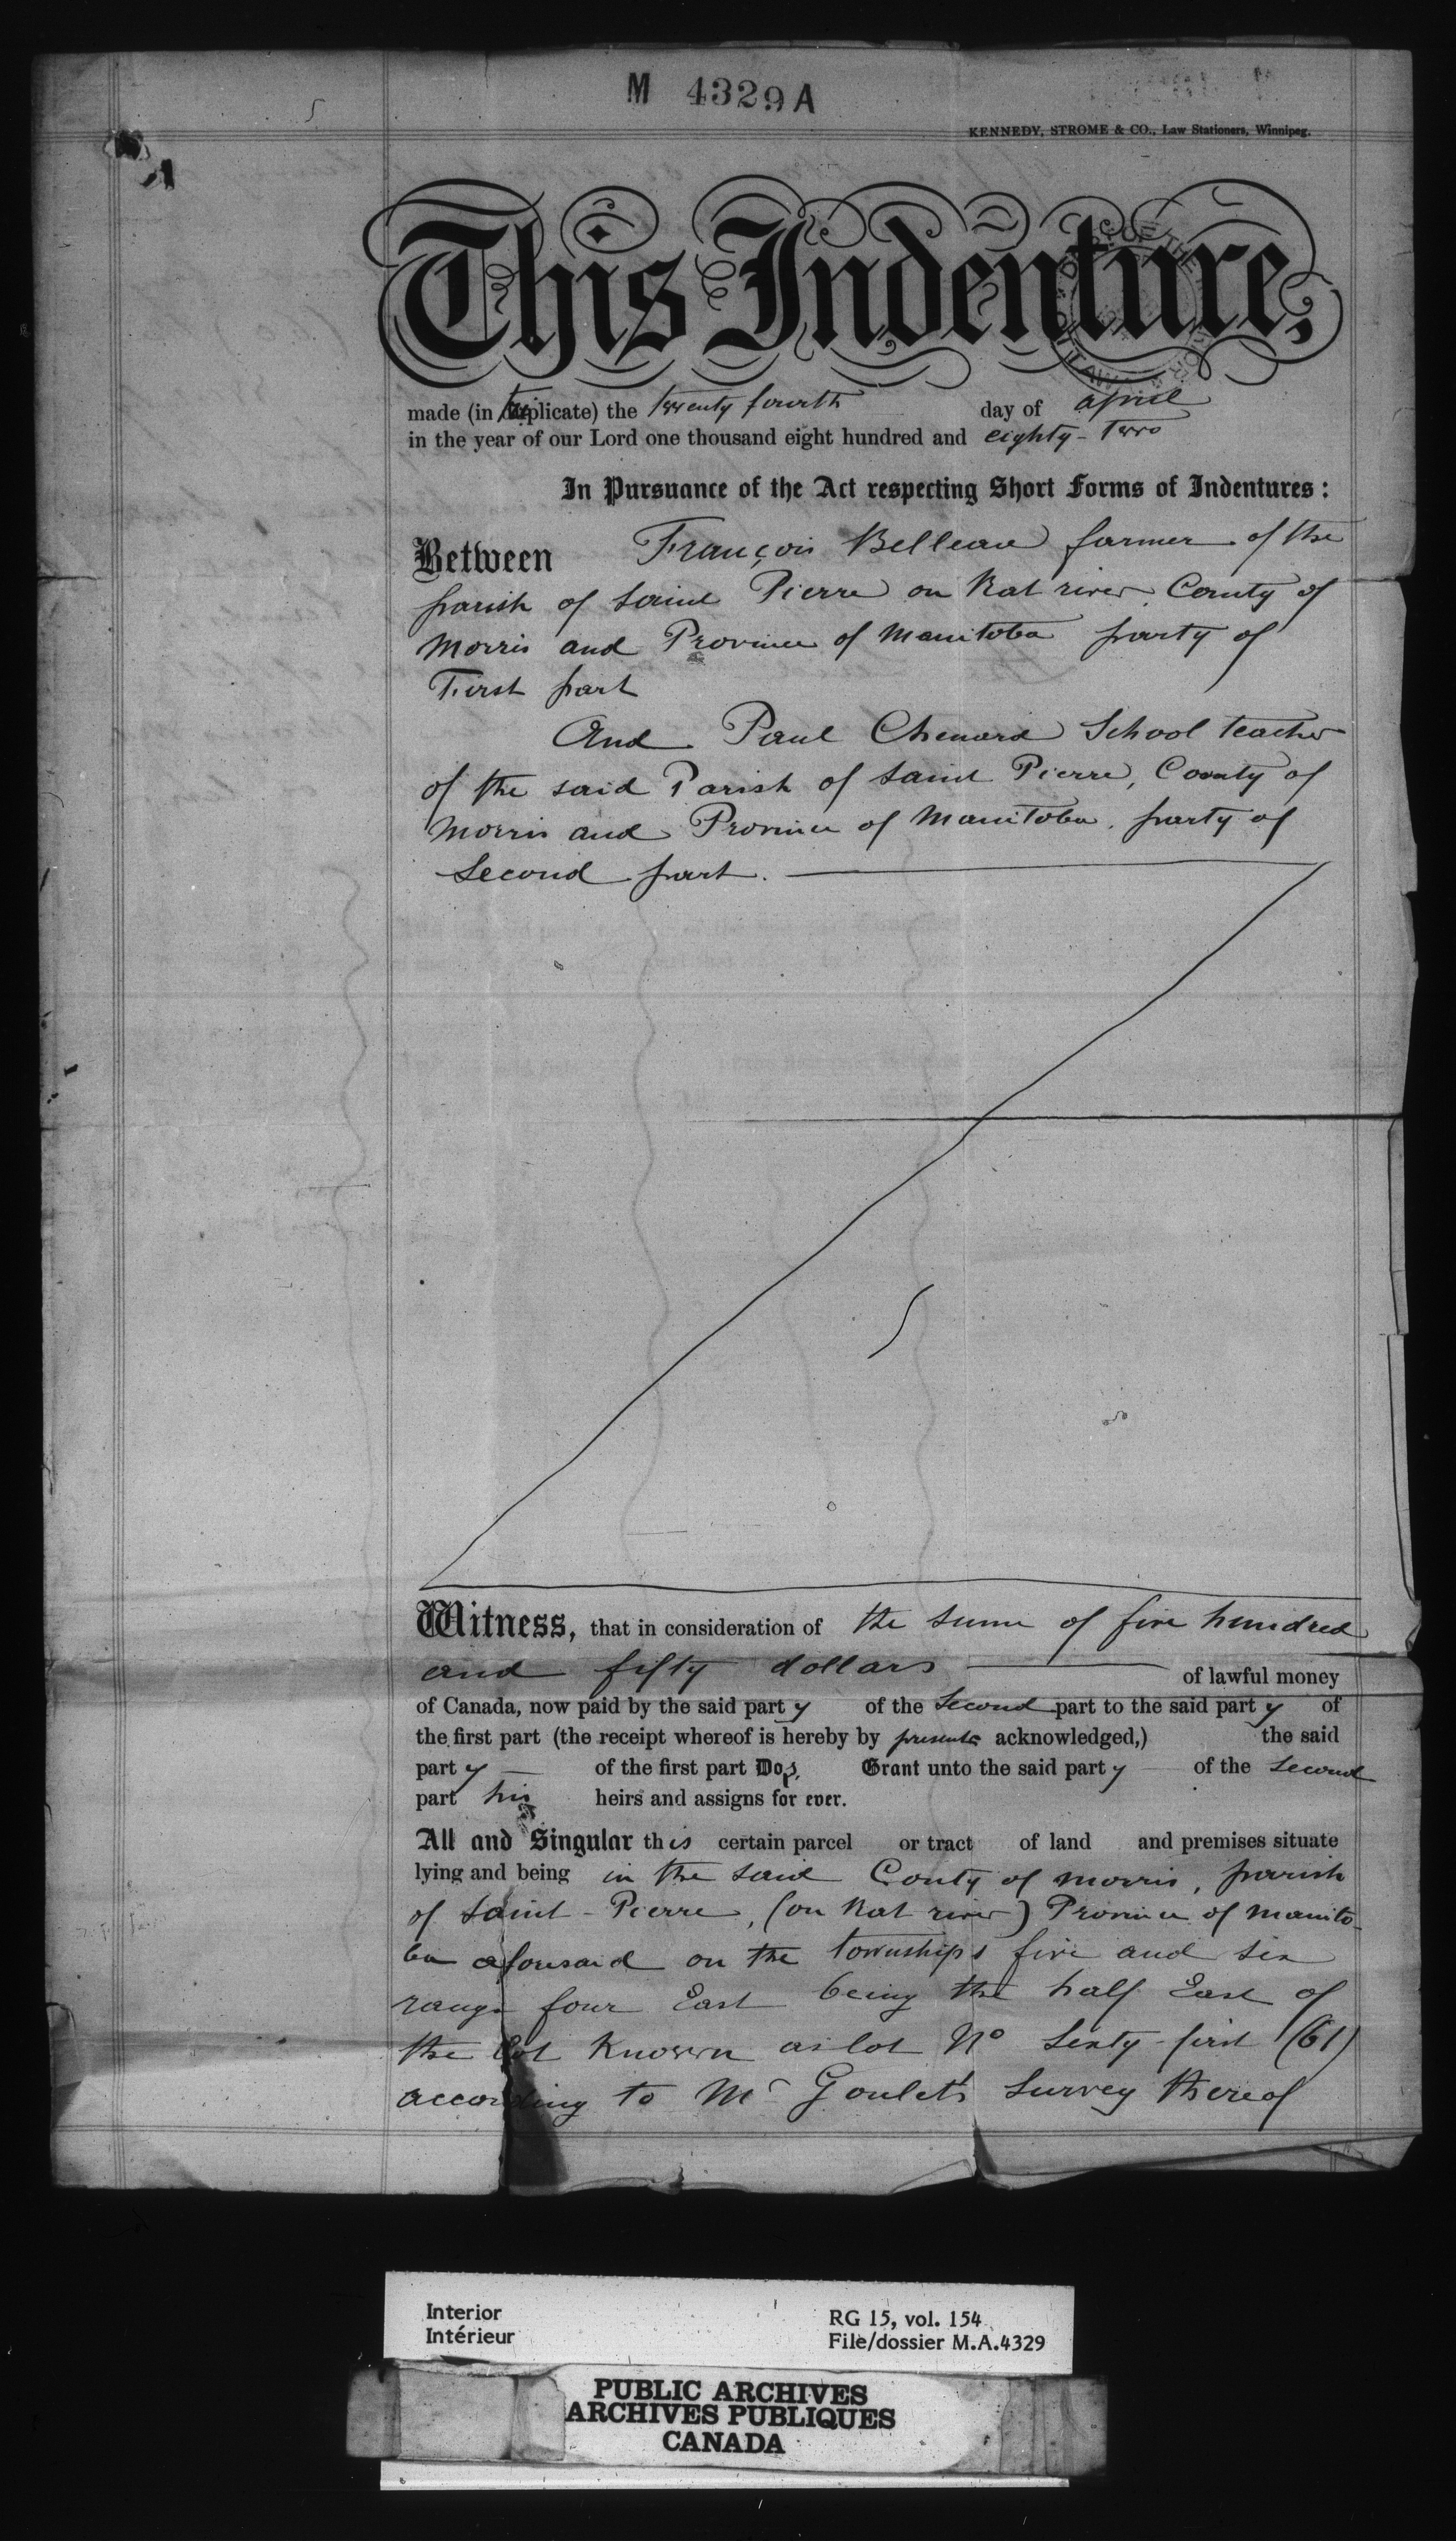 M 4329 A
KENNEDY, STROME & CO., Law Stationers, Winnipeg.
This Indenture,
made (in triplicate) the twenty fourth day of april
in the year of our Lord one thousand eight hundred and eighty-two
In Pursuance of the Act respecting Short Forms of Indentures:
Between François Belleau farmer of the
parish of Saint Pierre on Rat river County of
Morris and Province of Manitoba party of
First part
And Paul Chenard School teacher
of the said Parish of Saint Pierre, County of
Morris and Province of Manitoba, party of
Second part.
Witness, that in consideration of the sum of five hundred
and fifty dollars of lawful money
of Canada, now paid by the said party of the Second part to the said party of
the first part (the receipt whereof is hereby by presents acknowledged,) the said
party of the first part Dos, Grant unto the said party of the Second
part his heirs and assigns for ever.
All and Singular this certain parcel or tract of land and premises situate
lying and being in the said Conty of Morris, parish
of Saint-Pierre, (on Rat river) Province of Manito-
ba aforesaid on the townships five and six
range four East being the half East of
the lot Known as lot No Sixty-first (61)
according to Mr Goulet's Survey thereof
Interior
Intérieur
RG 15, vol. 154
File/dossier M.A.4329
PUBLIC ARCHIVES
ARCHIVES PUBLIQUES
CANADA